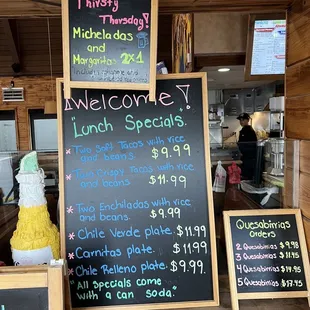 Thirsty
Thursday!
Micheladas
and
Margarita 2x1
Welcome!
"Lunch Specials"
* Two Soft Tacos with rice
and beans $9.99
Two Crispy Tacos with rice
and beans. $11.99
* Two Enchiladas with rice
and beans $9.99
* Chile Verde plate. $11.99
* Carnitas plate. $11.99
* Chile Relleno plate. $9.99
"All specials come
with a can soda."
Quesabirrias
Orders
2 Quesabirrias $9.98
3 Quesabirrias $11.95
4 Quesabirrias $14.95
5 Quesabirrias $17.95